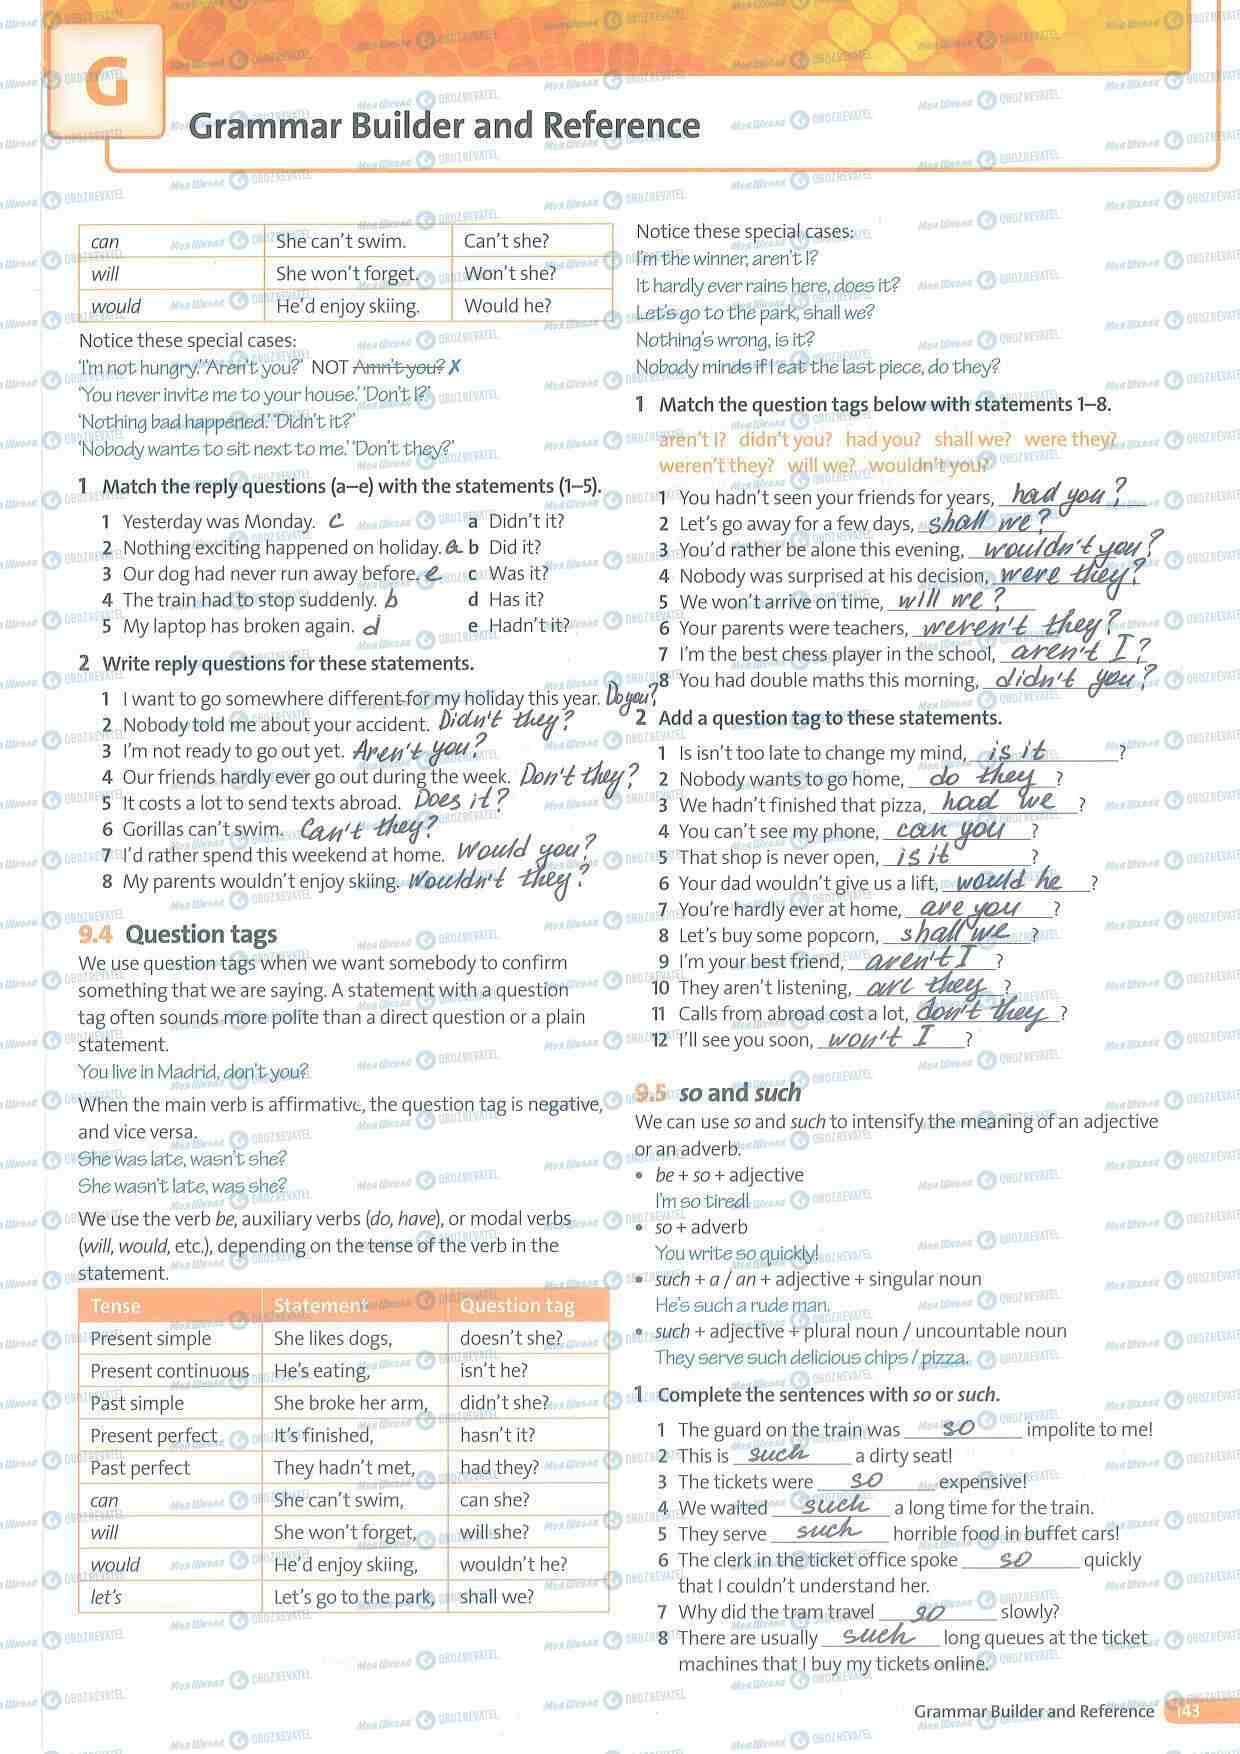 G
Grammar Builder and Reference
can She can't swim. Can't she?
will She won't forget. Won't she?
would He'd enjoy skiing. Would he?
Notice these special cases:
'I'm not hungry.' 'Aren't you?' NOT Amn't you? ✗
'You never invite me to your house.' 'Don't I?'
'Nothing bad happened.' 'Didn't it?'
'Nobody wants to sit next to me.' 'Don't they?'
1 Match the reply questions (a–e) with the statements (1–5).
1 Yesterday was Monday. c a Didn't it?
2 Nothing exciting happened on holiday. a b Did it?
3 Our dog had never run away before. e c Was it?
4 The train had to stop suddenly. b d Has it?
5 My laptop has broken again. d e Hadn't it?
2 Write reply questions for these statements.
1 I want to go somewhere different for my holiday this year. Do you?
2 Nobody told me about your accident. Didn't they?
3 I'm not ready to go out yet. Aren't you?
4 Our friends hardly ever go out during the week. Don't they?
5 It costs a lot to send texts abroad. Does it?
6 Gorillas can't swim. Can't they?
7 I'd rather spend this weekend at home. Would you?
8 My parents wouldn't enjoy skiing. Wouldn't they?
9.4 Question tags
We use question tags when we want somebody to confirm
something that we are saying. A statement with a question
tag often sounds more polite than a direct question or a plain
statement.
You live in Madrid, don't you?
When the main verb is affirmative, the question tag is negative,
and vice versa.
She was late, wasn't she?
She wasn't late, was she?
We use the verb be, auxiliary verbs (do, have), or modal verbs
(will, would, etc.), depending on the tense of the verb in the
statement.
Tense Statement Question tag
Present simple She likes dogs, doesn't she?
Present continuous He's eating, isn't he?
Past simple She broke her arm, didn't she?
Present perfect It's finished, hasn't it?
Past perfect They hadn't met, had they?
can She can't swim, can she?
will She won't forget, will she?
would He'd enjoy skiing, wouldn't he?
let's Let's go to the park, shall we?
Notice these special cases:
I'm the winner, aren't I?
It hardly ever rains here, does it?
Let's go to the park, shall we?
Nothing's wrong, is it?
Nobody minds if I eat the last piece, do they?
1 Match the question tags below with statements 1–8.
aren't I? didn't you? had you? shall we? were they?
weren't they? will we? wouldn't you?
1 You hadn't seen your friends for years, had you?
2 Let's go away for a few days, shall we?
3 You'd rather be alone this evening, wouldn't you?
4 Nobody was surprised at his decision, were they?
5 We won't arrive on time, will we?
6 Your parents were teachers, weren't they?
7 I'm the best chess player in the school, aren't I?
8 You had double maths this morning, didn't you?
2 Add a question tag to these statements.
1 Is isn't too late to change my mind, is it ?
2 Nobody wants to go home, do they ?
3 We hadn't finished that pizza, had we ?
4 You can't see my phone, can you ?
5 That shop is never open, is it ?
6 Your dad wouldn't give us a lift, would he ?
7 You're hardly ever at home, are you ?
8 Let's buy some popcorn, shall we ?
9 I'm your best friend, aren't I ?
10 They aren't listening, are they ?
11 Calls from abroad cost a lot, don't they ?
12 I'll see you soon, won't I ?
9.5 so and such
We can use so and such to intensify the meaning of an adjective
or an adverb.
• be + so + adjective
I'm so tired!
• so + adverb
You write so quickly!
• such + a / an + adjective + singular noun
He's such a rude man.
• such + adjective + plural noun / uncountable noun
They serve such delicious chips / pizza.
1 Complete the sentences with so or such.
1 The guard on the train was so impolite to me!
2 This is such a dirty seat!
3 The tickets were so expensive!
4 We waited such a long time for the train.
5 They serve such horrible food in buffet cars!
6 The clerk in the ticket office spoke so quickly
that I couldn't understand her.
7 Why did the tram travel so slowly?
8 There are usually such long queues at the ticket
machines that I buy my tickets online.
Grammar Builder and Reference 143